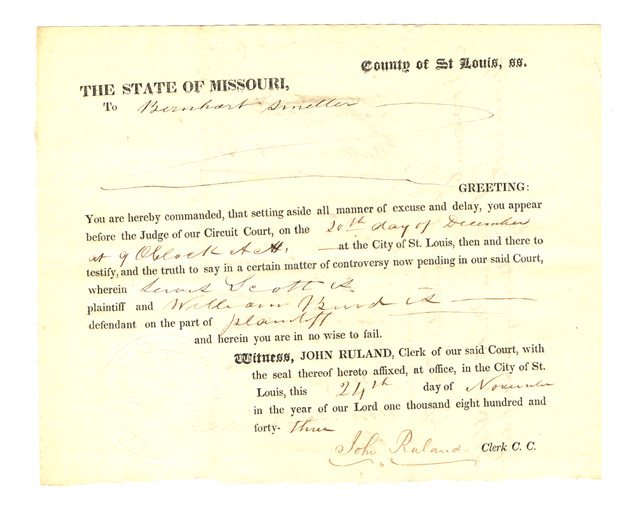 County of St Louis, ss.
THE STATE OF MISSOURI,
To Bernhart Smelter
GREETING:
You are hereby commanded, that setting aside all manner of excuse and delay, you appear
before the Judge of our Circuit Court, on the 20th day of December
at 9 OClock A M. at the City of St. Louis, then and there to
testify, and the truth to say in a certain matter of controversy now pending in our said Court,
wherein Scott is
plaintiff and William Burd is
defendant on the part of plaintiff
and herein you are in no wise to fail.
Witness, JOHN RULAND, Clerk of our said Court, with
the seal thereof hereto affixed, at office, in the City of St.
Louis, this 24th day of November
in the year of our Lord one thousand eight hundred and
forty-three
John Ruland Clerk C. C.